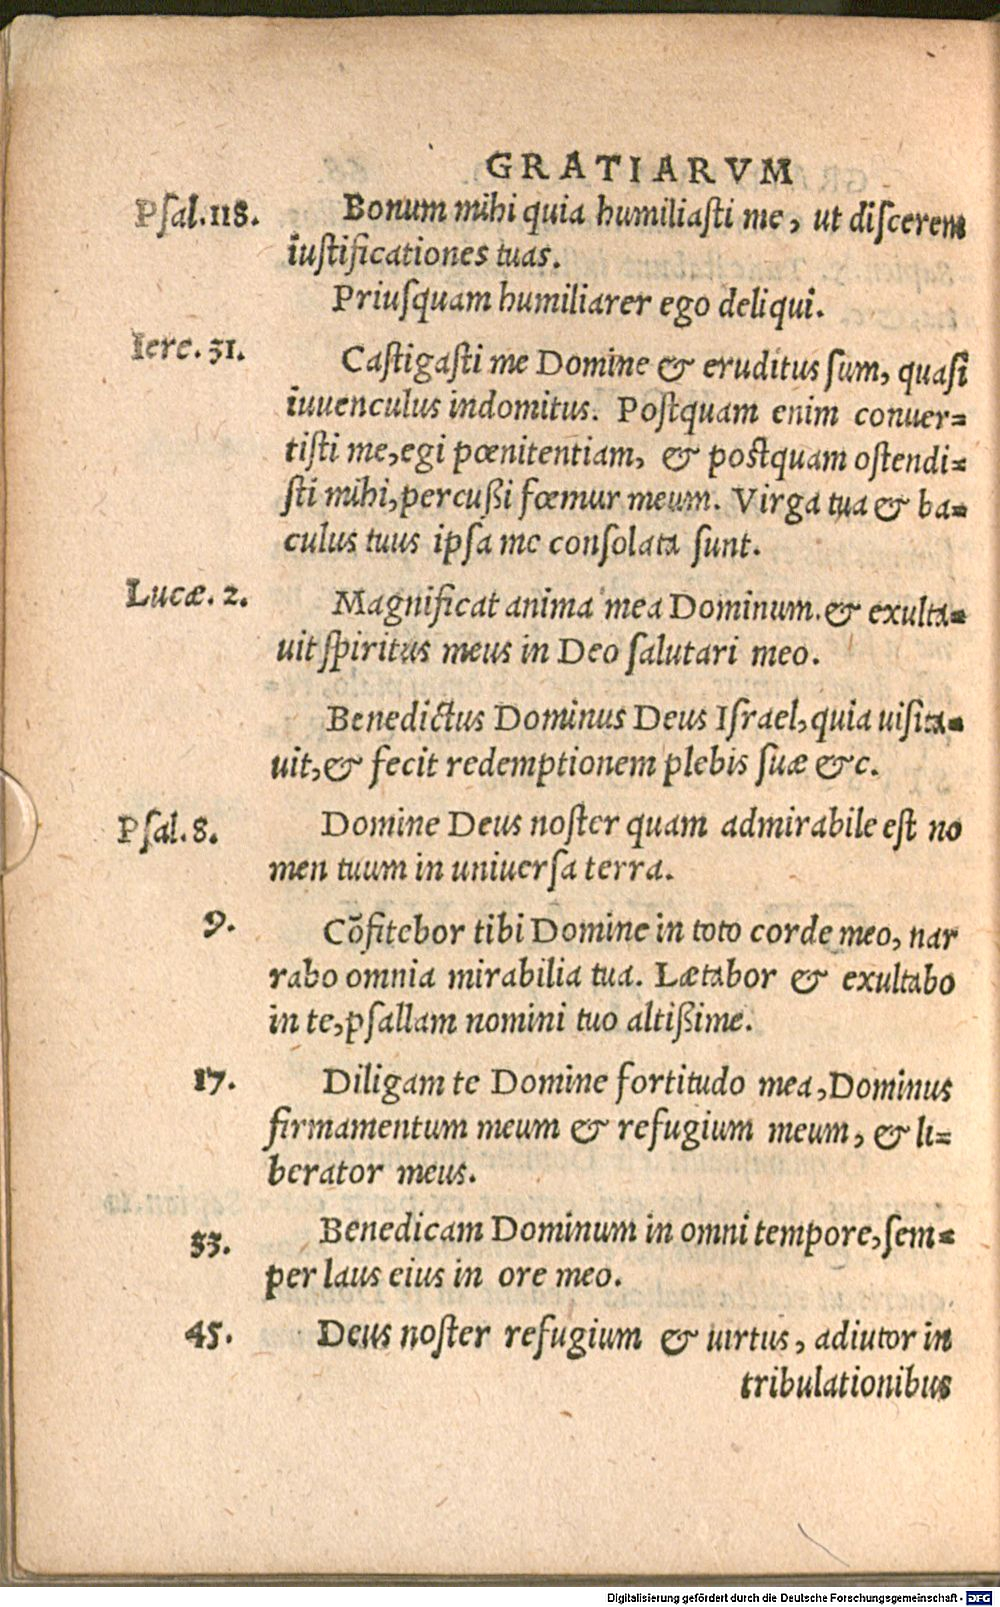 GRATIARVM
Psal.118. Bonum mihi quia humiliasti me, ut discerem
iustificationes tuas.
Priusquam humiliarer ego deliqui.
Iere. 31. Castigasti me Domine & eruditus sum, quasi
iuuenculus indomitus. Postquam enim conuer=
tisti me, egi pœnitentiam, & postquam ostendi=
sti mihi, percußi fœmur meum. Virga tua & ba=
culus tuus ipsa me consolata sunt.
Lucæ. 2. Magnificat anima mea Dominum. & exulta=
uit spiritus meus in Deo salutari meo.
Benedictus Dominus Deus Israel, quia uisita=
uit, & fecit redemptionem plebis suæ &c.
Psal. 8. Domine Deus noster quam admirabile est no
men tuum in uniuersa terra.
9. Cõfitebor tibi Domine in toto corde meo, nar
rabo omnia mirabilia tua. Lætabor & exultabo
in te, psallam nomini tuo altißime.
17. Diligam te Domine fortitudo mea, Dominus
firmamentum meum & refugium meum, & li=
berator meus.
33. Benedicam Dominum in omni tempore, sem=
per laus eius in ore meo.
45. Deus noster refugium & uirtus, adiutor in
tribulationibus
Digitalisierung gefördert durch die Deutsche Forschungsgemeinschaft - DFG